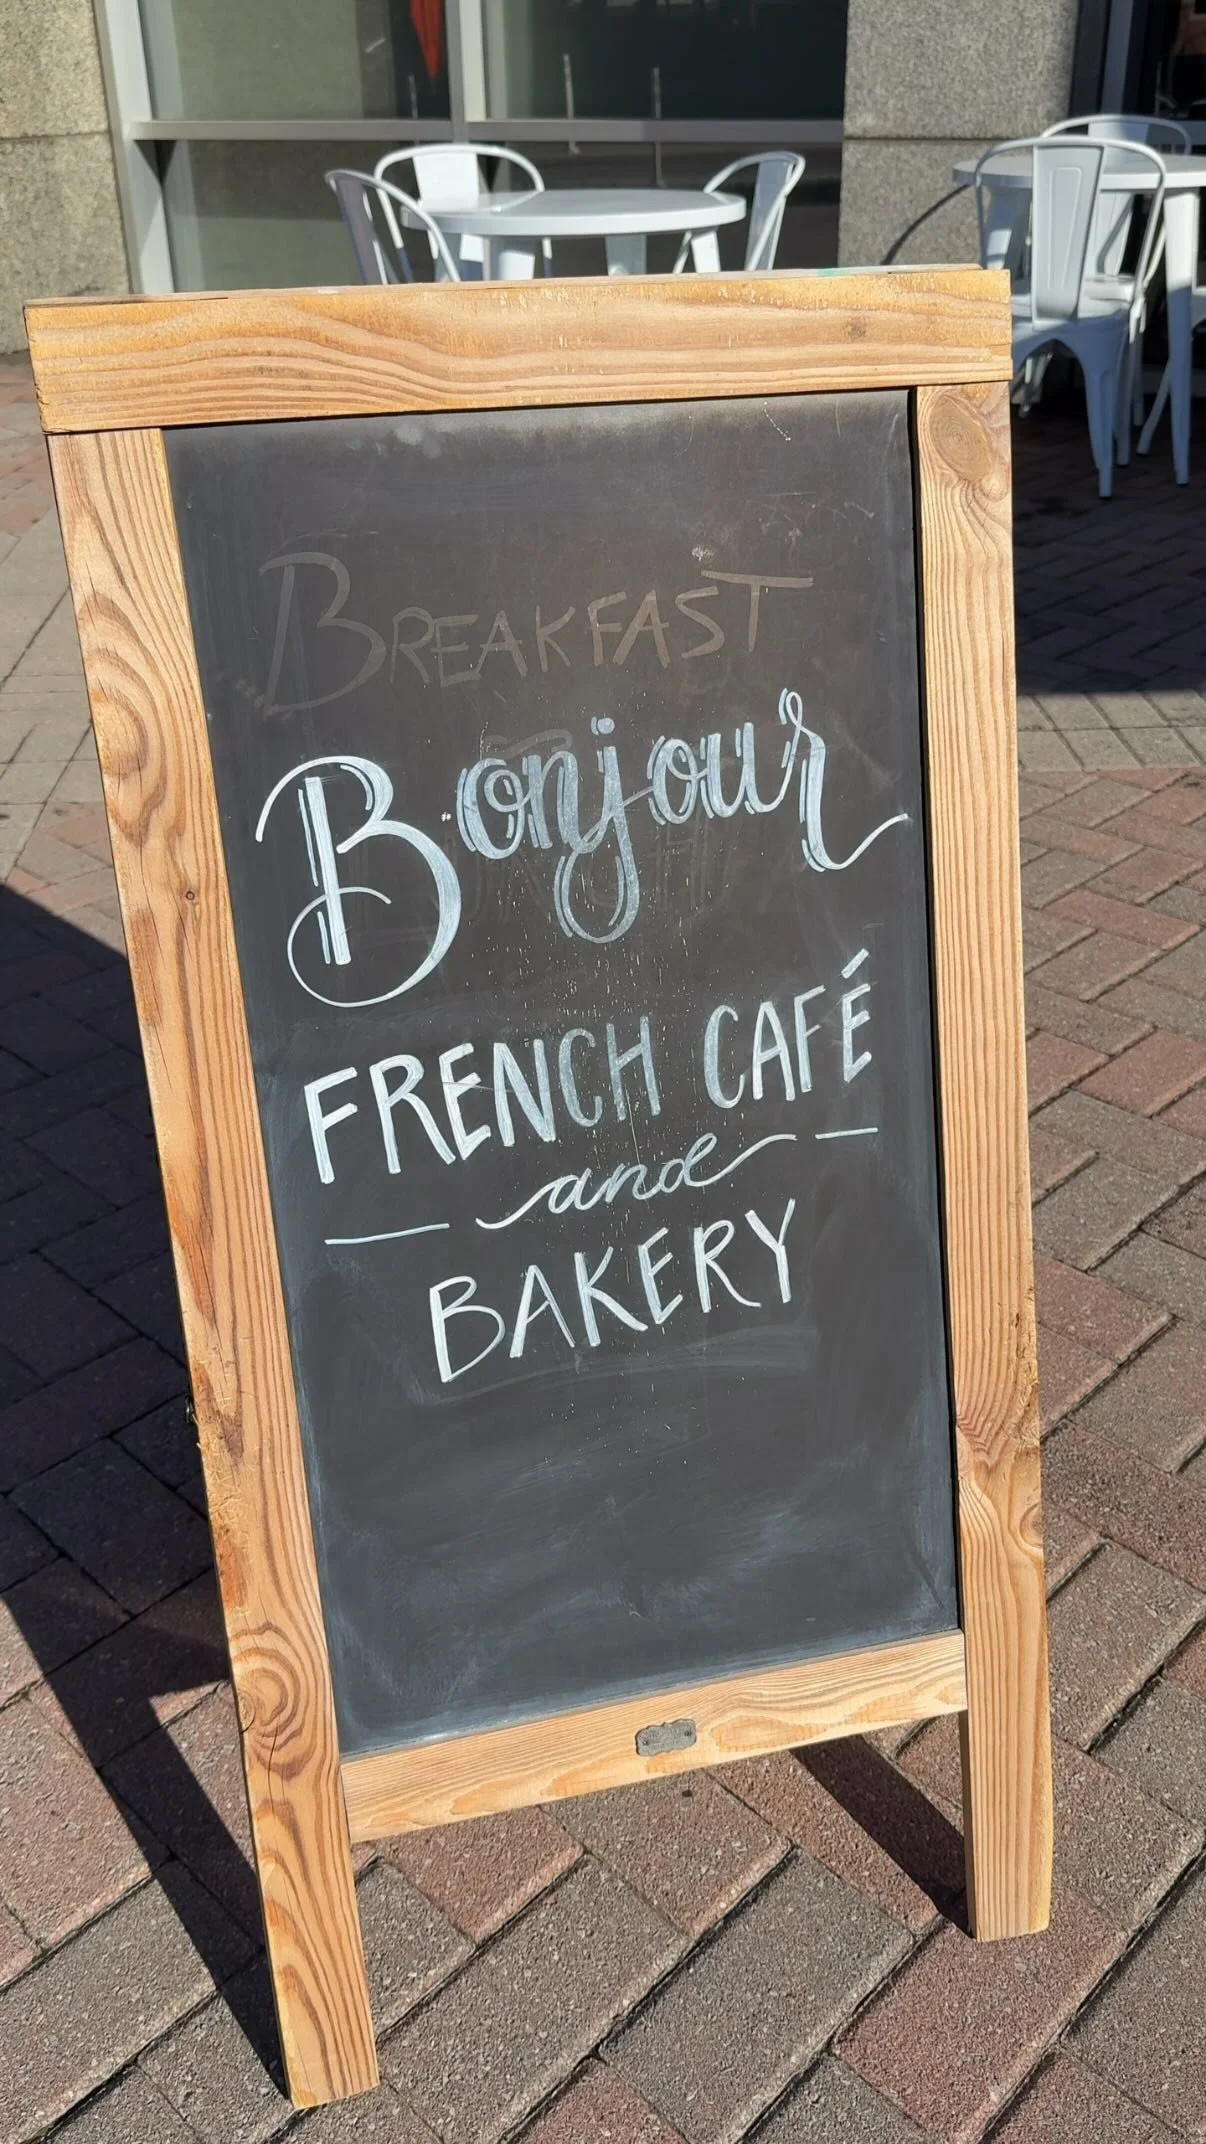 BREAKFAST
Bonjour
FRENCH CAFÉ
and
BAKERY